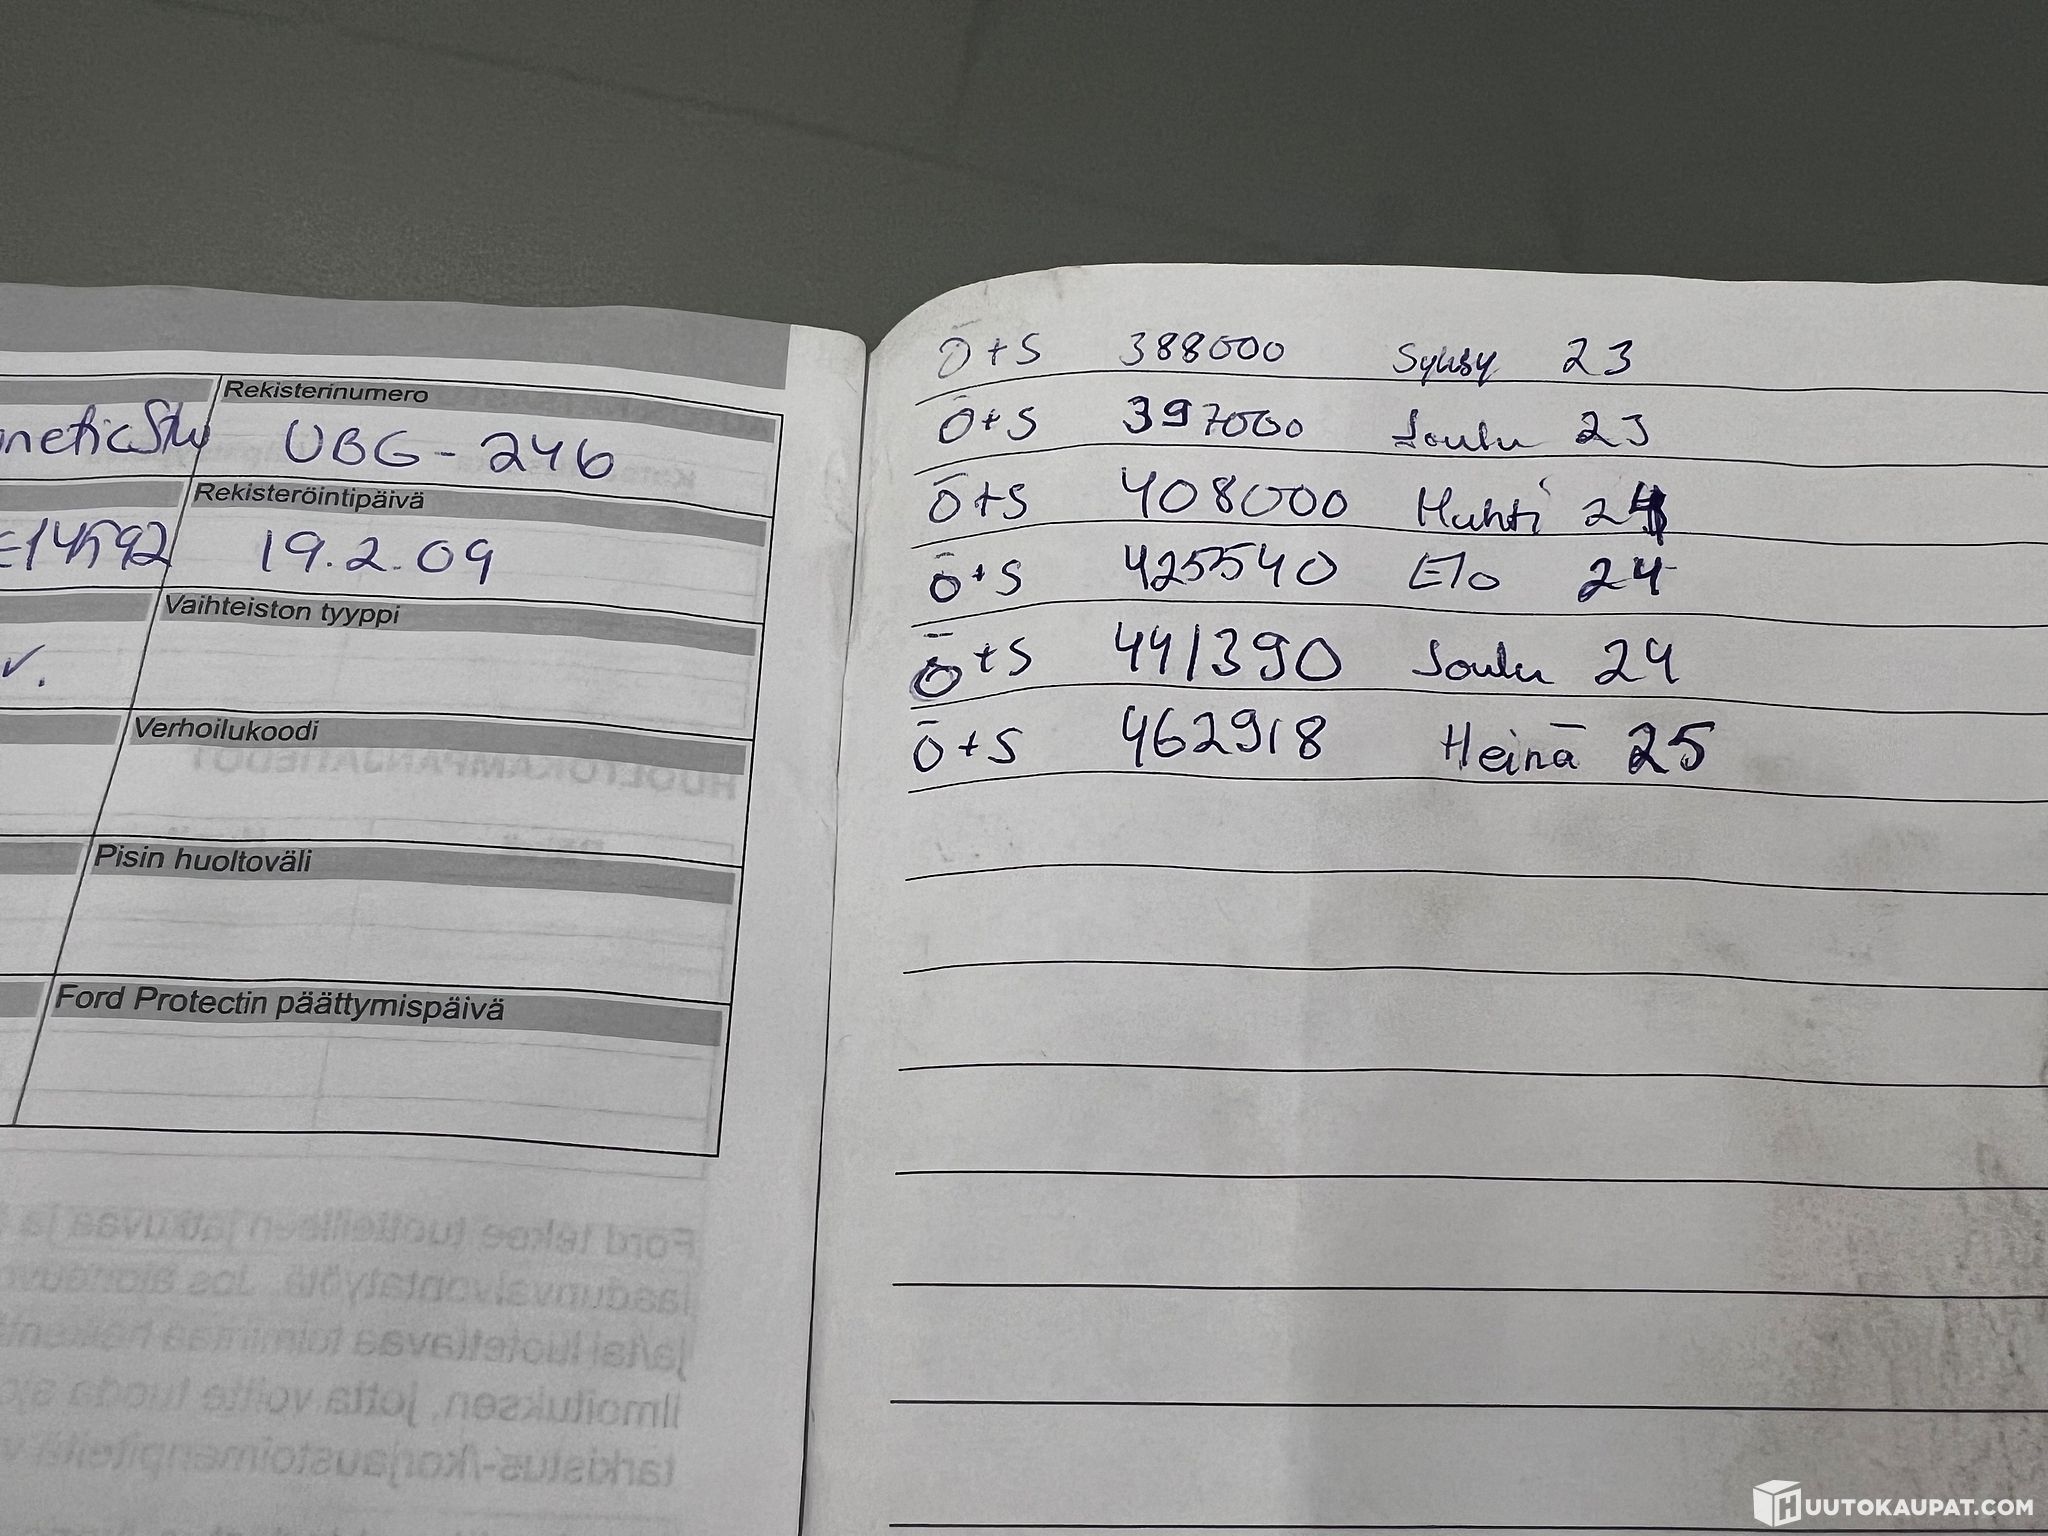 Rekisterinumero
UBG-246
Rekisteröintipäivä
E14592 19.2.09
Vaihteiston tyyppi
v.
Verhoilukoodi
Pisin huoltoväli
Ford Protectin päättymispäivä
Ö+S 388000 Syksy 23
Ö+S 397000 Joulu 23
Ö+S 408000 Huhti 24
Ö+S 425540 Elo 24
Ö+S 441390 Joulu 24
Ö+S 462918 Heinä 25
HUUTOKAUPAT.COM